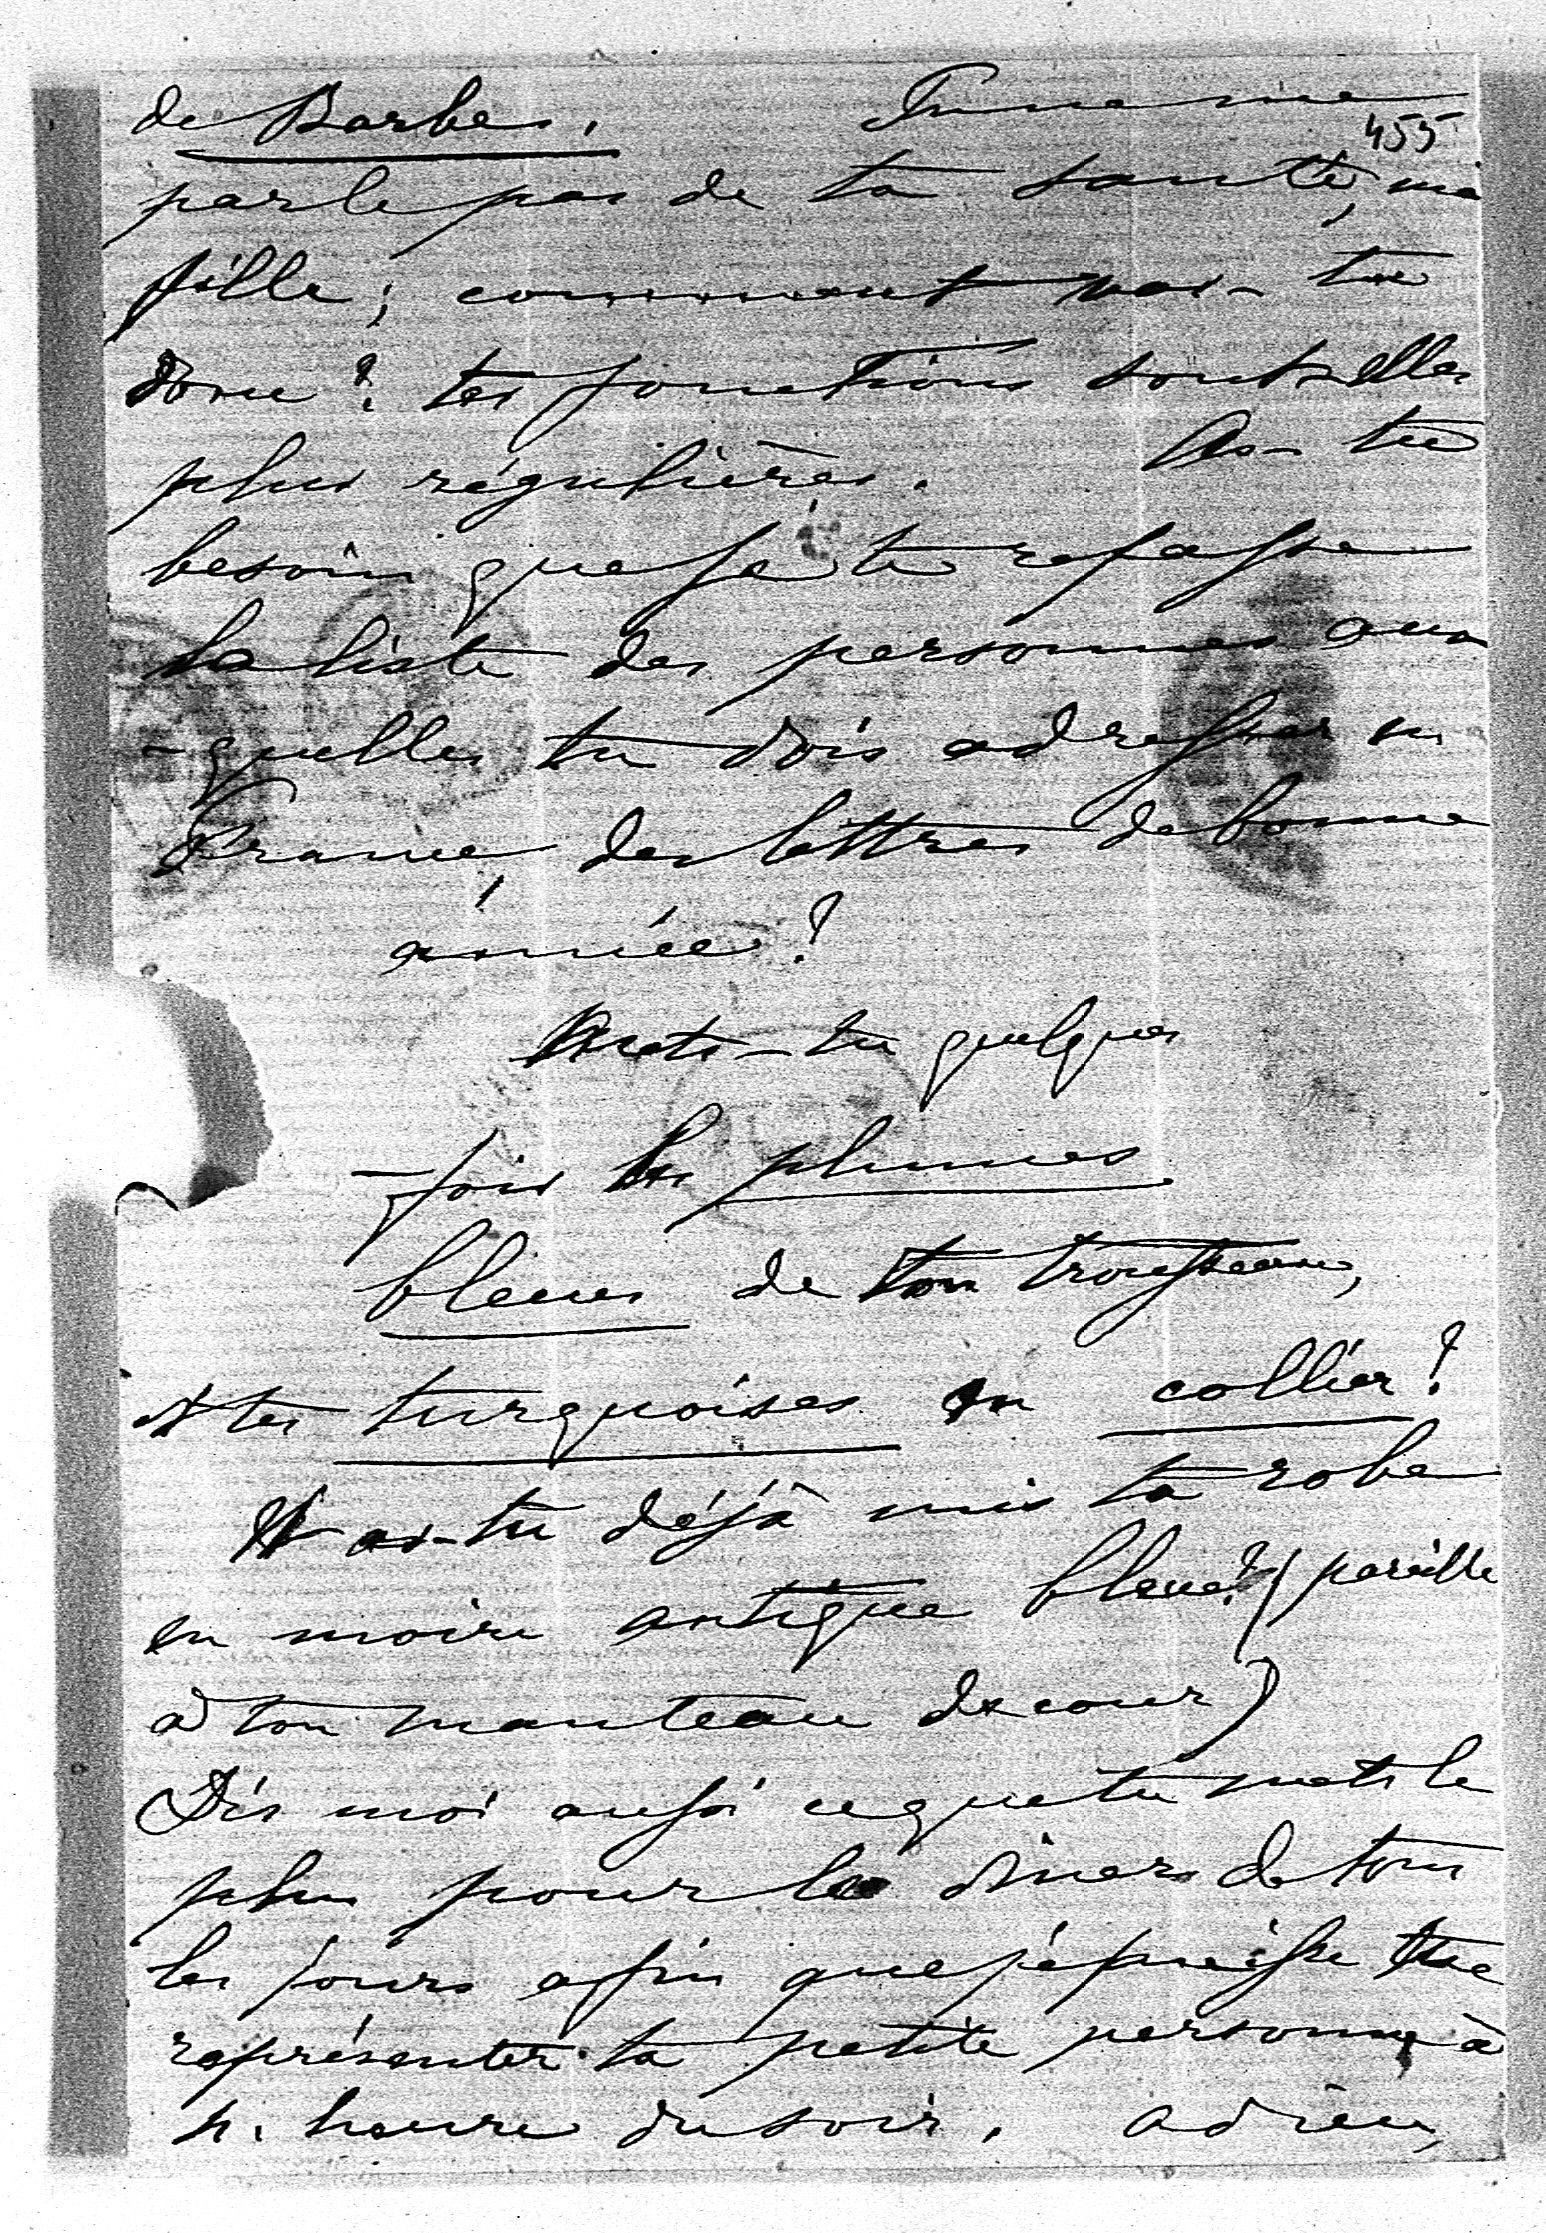 de Barbes. Tu ne me
455
parle pas de ta santé, ma
fille; comment vas-tu
donc? tes fonctions sont-elles
plus régulières. As-tu
besoin que je te refasse
la liste des personnes aux
-quelles tu dois adresser en
France, des lettres de bonne
année?
Mets-tu quelques
-fois les plumes
bleues de ton trousseau,
et tes turquoises en collier?
Et as-tu déjà mis ta robe
en moire antique bleue? (pareille
à ton manteau de cour)
Dis moi aussi ce que tu mets le
plus pour les diners de tous
les jours afin que je puisse me
représenter ta petite personne à
n. heure du soir. adieu,